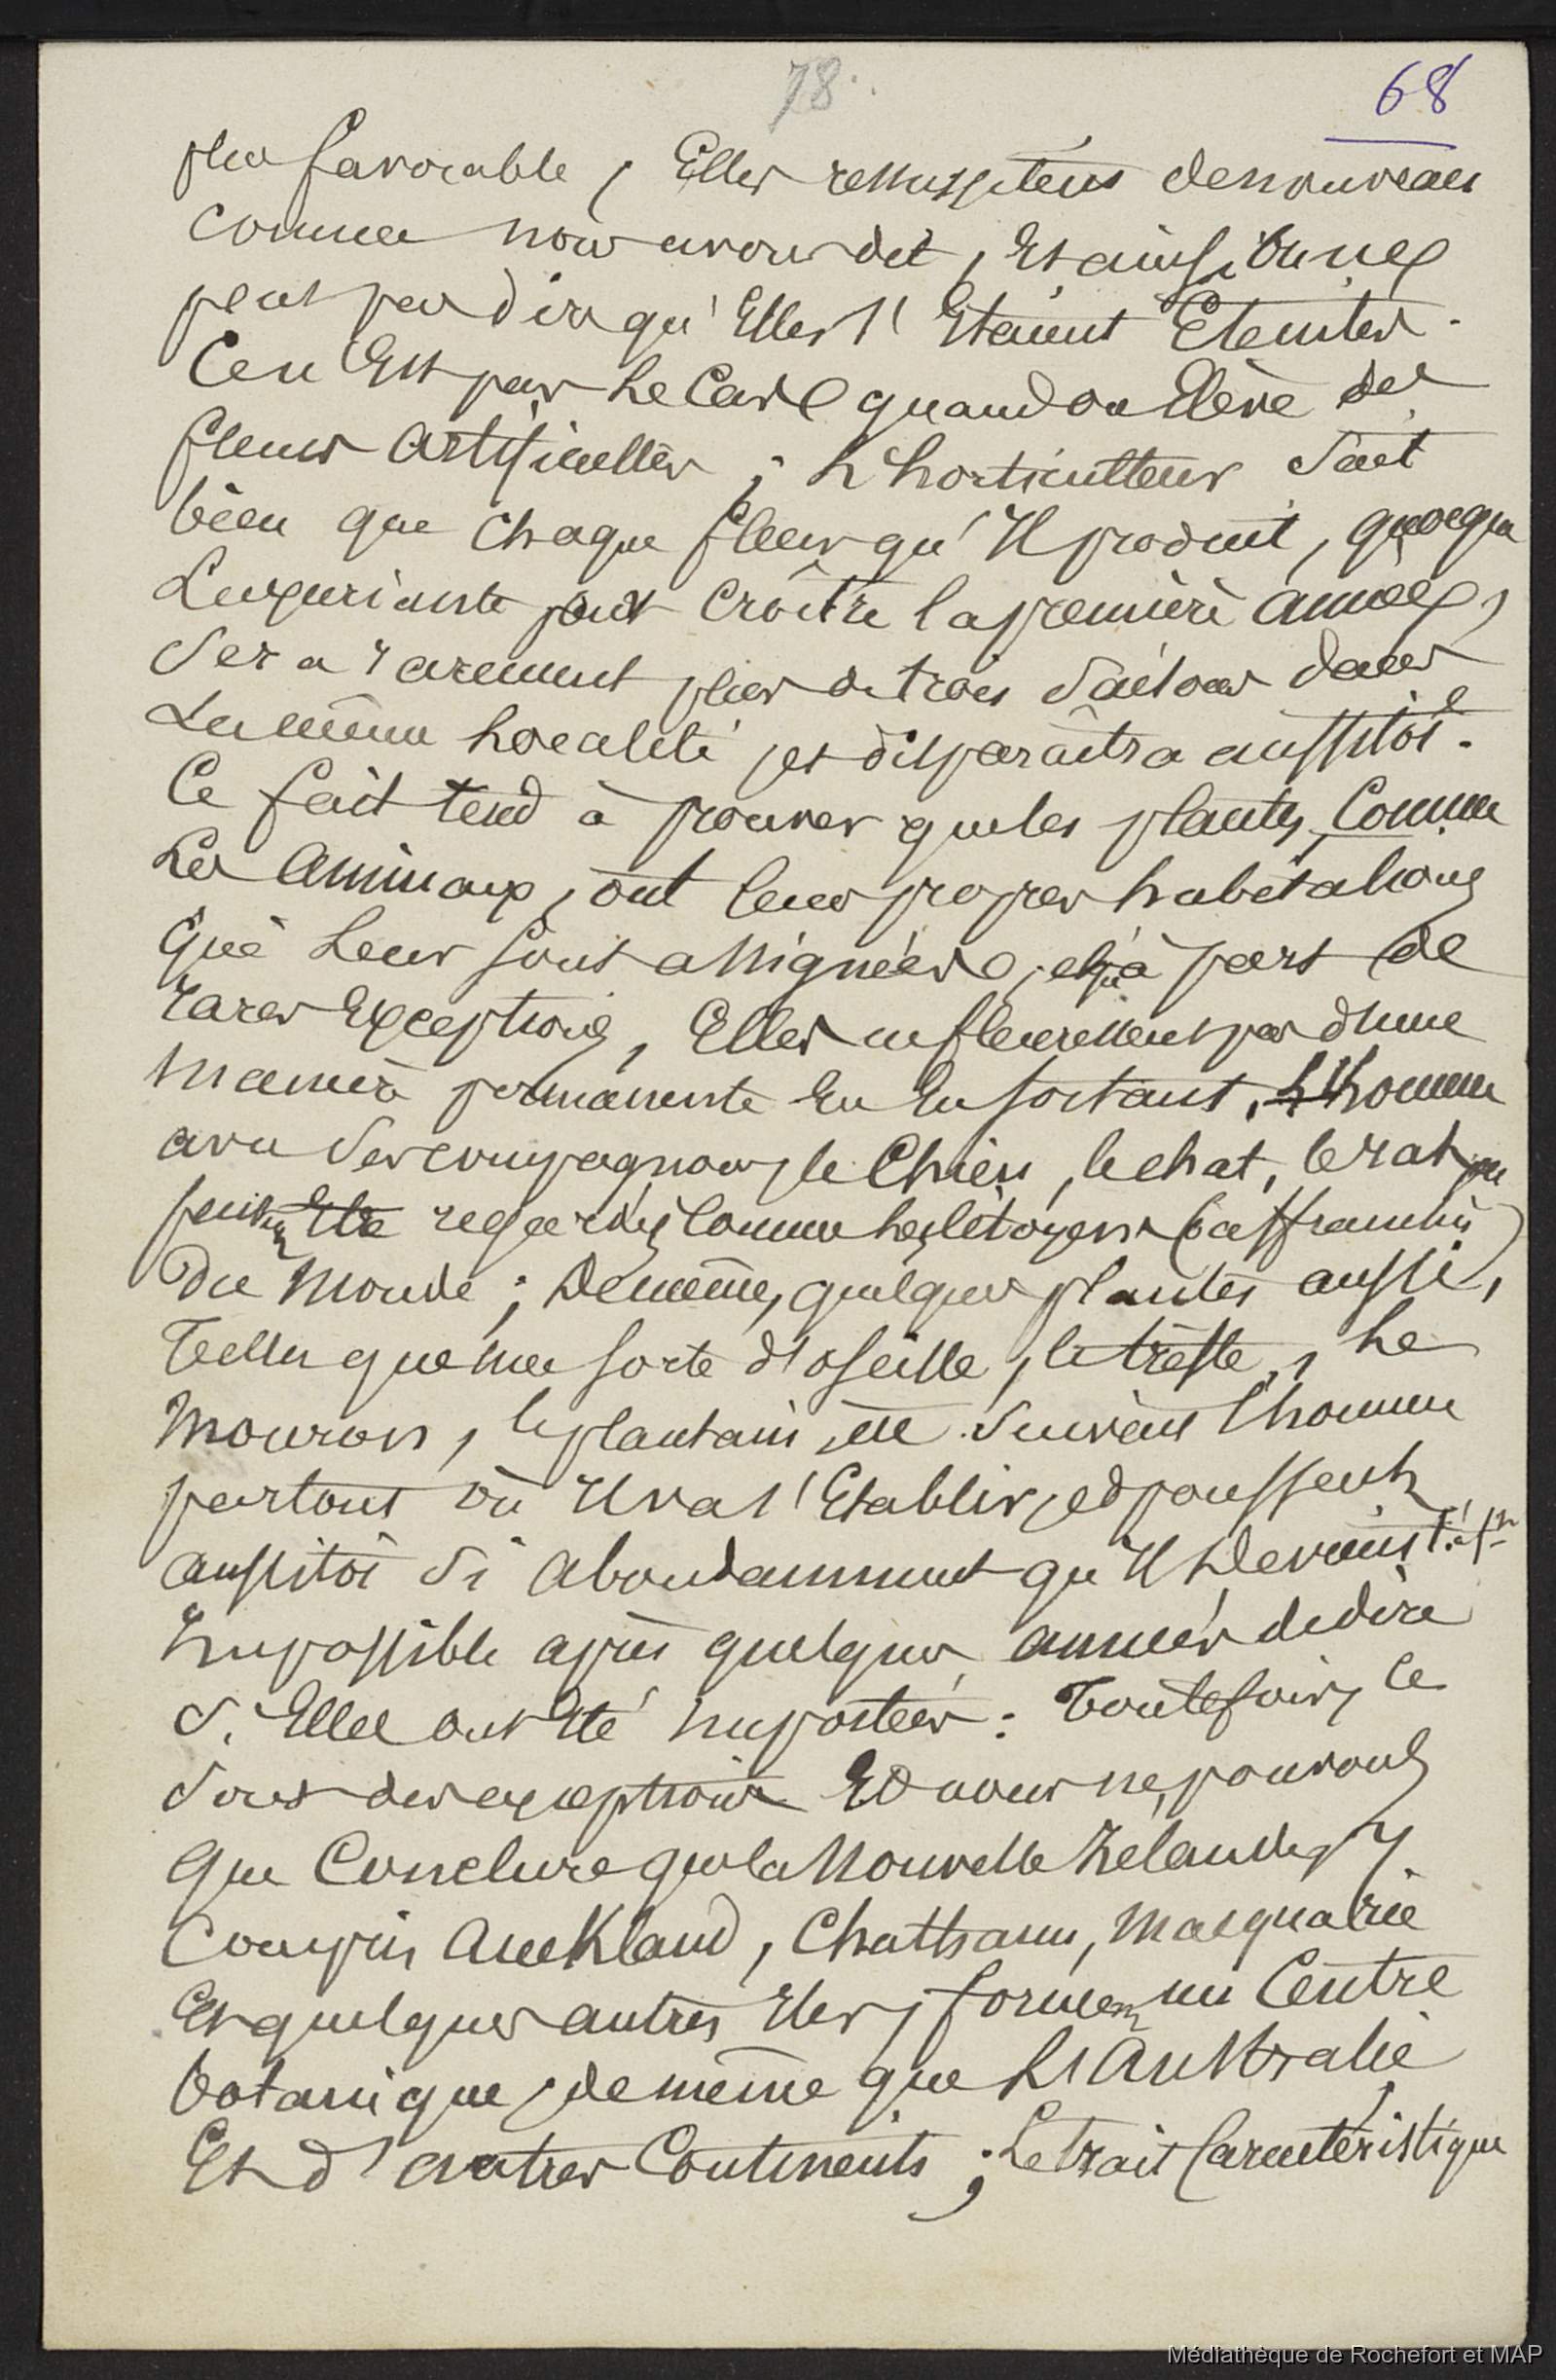 78.
68
plus favorable, Elles ressuscitent de nouveau
comme nous avons dit, Et ainsi on ne
peut pas dire qu'Elles s'Etaient Eteintes.
Ce n'Est pas Le Cas quand on Elève des
fleurs Artificielles ; L'horticulteur Sait
bien que Chaque fleur qu'Il produit, quoique
Luxuriante peut Croître la première année,
Sera rarement plus de trois Saisons dans
La même Localité, et disparaîtra aussitôt.
Ce fait tend à prouver que les plantes, Comme
Les Animaux, ont leurs propres habitations
Qui Leur sont assignées, et qu'à part de
rares Exceptions, Elles ne fleurissent pas d'une
manière permanente En En sortant. L'homme
avec Ses compagnons, le Chien, le chat, le rat
peuvent Etre regardés Comme les Citoyens (affranchis)
Du Monde ; De même, quelques plantes aussi,
Telles que une sorte d'oseille, le trèfle, Le
Mouron, le plantain, etc. Suivent l'homme
partout où Il va s'Etablir, et poussent
aussitôt Si Abondamment qu'Il Devient
Impossible après quelques années de dire
S'Elles ont Eté Importées. Toutefois, Ce
Sont des exceptions Et nous ne pouvons
Que Conclure que la Nouvelle Zélande, Y
Compris Auckland, Chattham, Macquarie
Et quelques autres Iles, forment un Centre
botanique, de même que L'Australie
Et d'autres Continents ; Le trait Caractéristique
Médiathèque de Rochefort et MAP